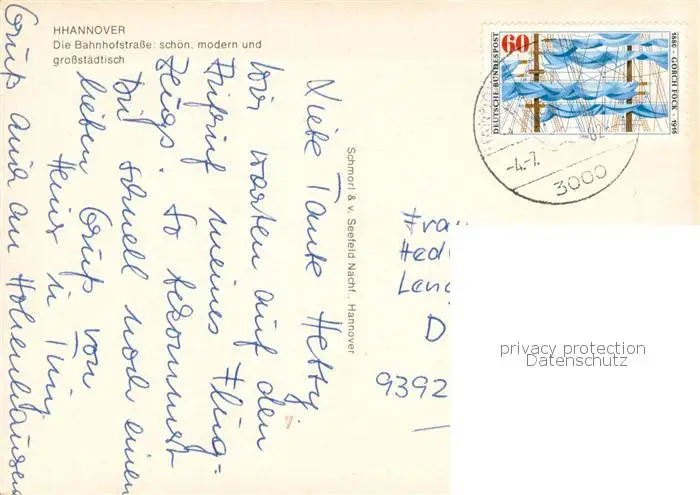 HHANNOVER
Die Bahnhofstraße: schön, modern und
großstädtisch
Liebe Tante Hetty,
Wir warten auf den
Abflug meines Flug-
zeugs. So bekommst
Du schnell noch einen
lieben Gruß von
Heinz u.
Gruß auch an
Schmorl & v. Seefeld Nachf., Hannover
60
DEUTSCHE BUNDESPOST
1880 - GORCH FOCK - 1916
-4.-7.
82
3000
Frau
Hed
Lan
D
9392
privacy protection
Datenschutz